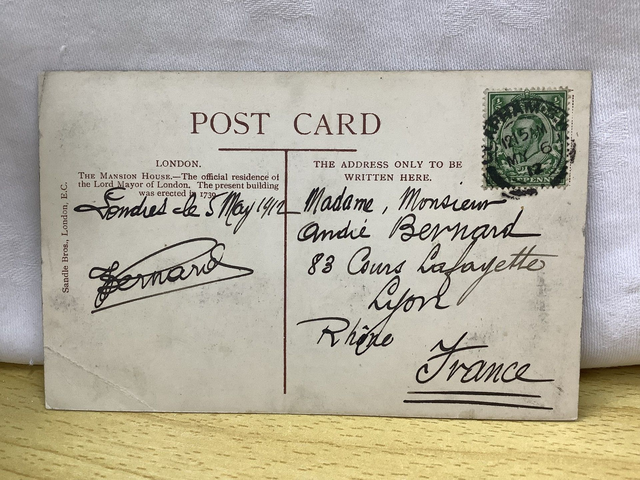 POST CARD
LONDON.
THE MANSION HOUSE.—The official residence of
the Lord Mayor of London. The present building
was erected in 1739
Londres le 5 May 1912
Bernard
Sandle Bros., London, E.C.
THE ADDRESS ONLY TO BE
WRITTEN HERE.
Madame, Monsieur
André Bernard
83 Cours Lafayette
Lyon
Rhône
France
12.15 AM
MY 6
12